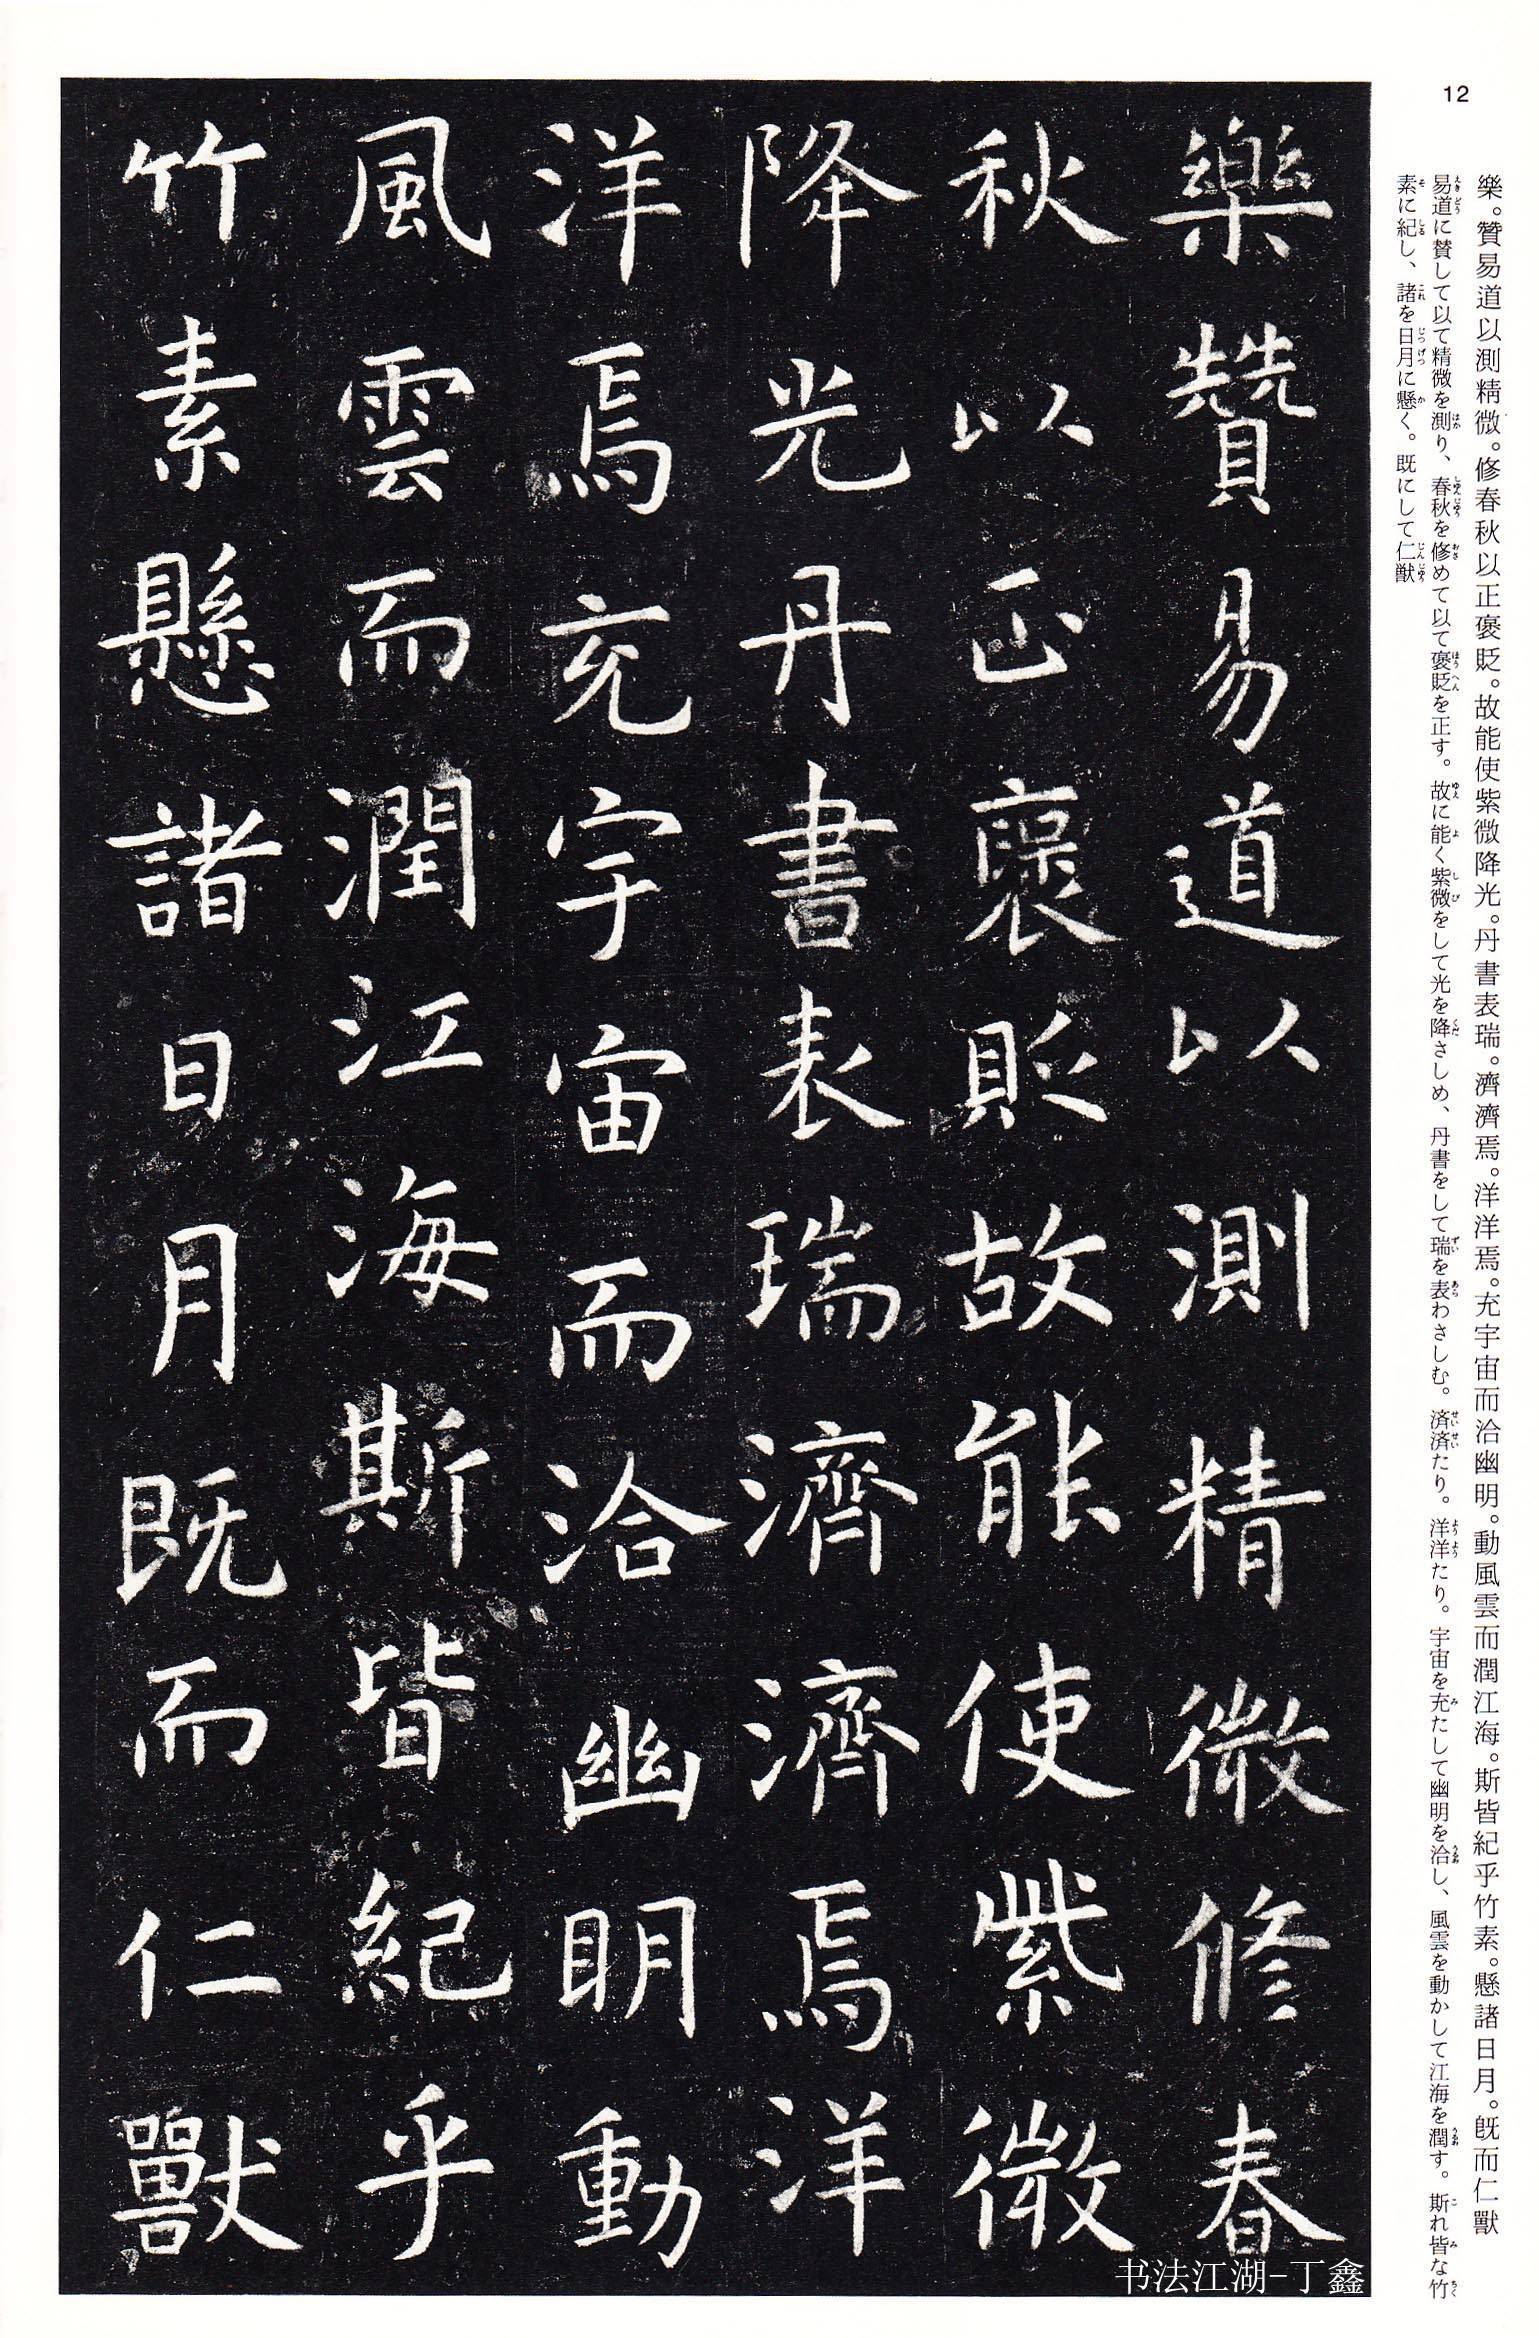 12
樂。贊易道以測精微。修春秋以正褒貶。故能使紫微降光。丹書表瑞。濟濟焉。洋洋焉。充宇宙而洽幽明。動風雲而潤江海。斯皆紀乎竹素。懸諸日月。既而仁獸
易道に賛して以て精微を測り、春秋を修めて以て褒貶を正す。故に能く紫微をして光を降さしめ、丹書をして瑞を表わさしむ。済済たり。洋洋たり。宇宙を充たして幽明を洽し、風雲を動かして江海を潤す。斯れ皆な竹
素に紀し、諸を日月に懸く。既にして仁獣
樂贊易道以測精微修春
秋以正褒貶故能使紫微
降光丹書表瑞濟濟焉洋
洋焉充宇宙而洽幽明動
風雲而潤江海斯皆紀乎
竹素懸諸日月既而仁獸
书法江湖-丁鑫